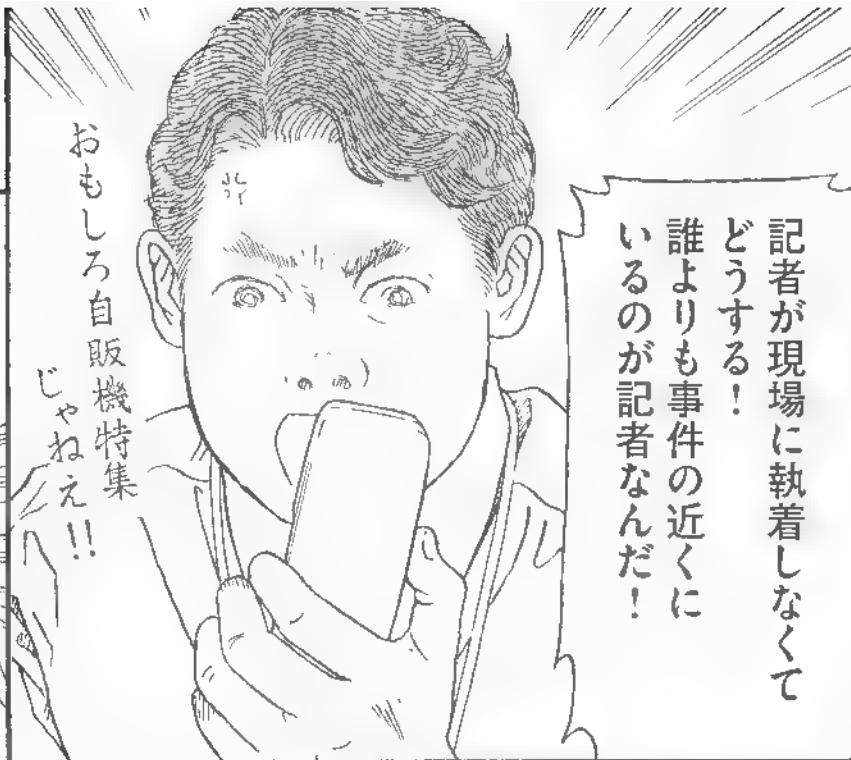 記者が現場に執着しなくて
どうする！
誰よりも事件の近くに
いるのが記者なんだ！
おもしろ自販機特集
じゃねえ!!